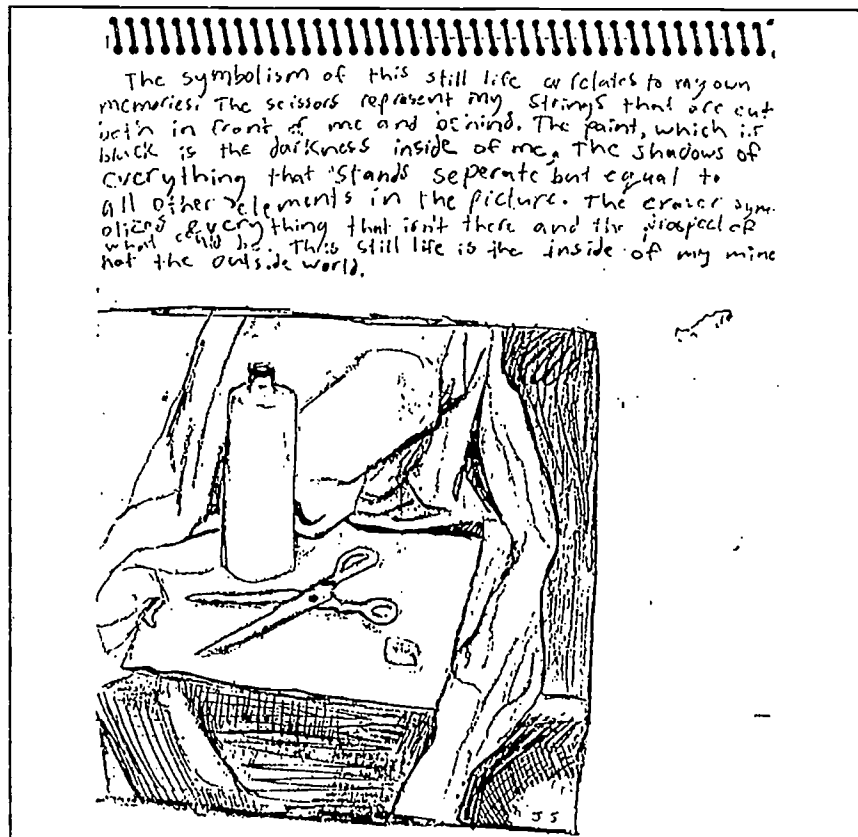 The symbolism of this still life correlates to my own
memories. The scissors represent my strings that are cut
both in front of me and behind. The paint, which is
black is the darkness inside of me. The shadows of
everything that stands seperate but equal to
all other elements in the picture. The eraser sym-
olizes everything that isn't there and the prospect of
what could be. This still life is the inside of my mine
not the outside world.
JS